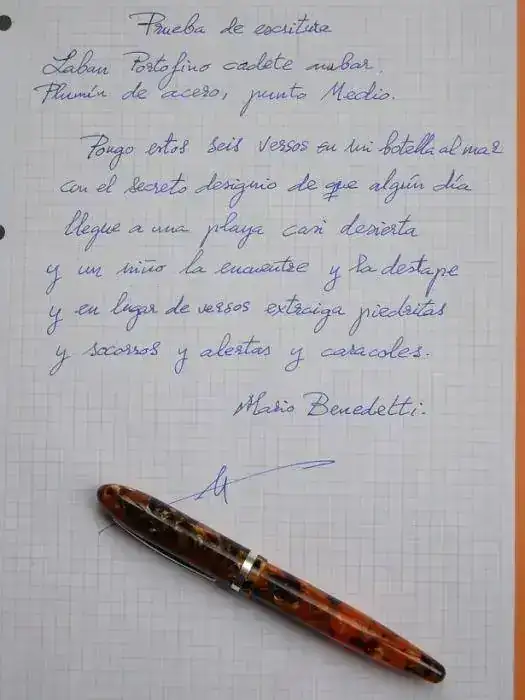 Prueba de escritura
Laban Portofino cadete nubar.
Plumín de acero, punto Medio.
Pongo estos seis versos en mi botella al mar
con el secreto designio de que algún día
llegue a una playa casi desierta
y un niño la encuentre y la destape
y en lugar de versos extraiga piedritas
y socorros y alertas y caracoles.
Mario Benedetti.